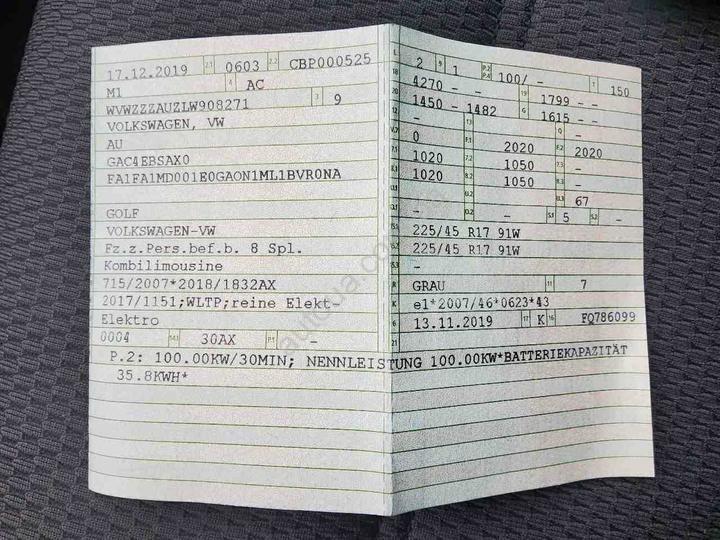 17.12.2019 2.1 0603 2.2 CBP000525
M1 4 AC
WVWZZZAUZLW908271 3 9
VOLKSWAGEN, VW
AU
GAC4EBSAX0
FA1FA1MD001E0GAON1ML1BVR0NA
GOLF
VOLKSWAGEN-VW
Fz.z.Pers.bef.b. 8 Spl.
Kombilimousine
715/2007*2018/1832AX
2017/1151;WLTP;reine Elekt-
Elektro
0004 14.1 30AX P.1 -
L 2 9 1 P.2 P.4 100/ - T 150
18 4270 - - 19 1799 - -
20 1450 - 1482 G 1615 - -
12 - 13 - Q -
V.7 0 F.1 2020 F.2 2020
7.1 1020 7.2 1050 7.3 -
8.1 1020 8.2 1050 8.3 -
U.1 - U.2 - U.3 67
O.1 - O.2 - S.1 5 S.2 -
15.1 225/45 R17 91W
15.2 225/45 R17 91W
15.3 -
R GRAU 11 7
K e1*2007/46*0623*43
6 13.11.2019 17 K 16 FQ786099
21
P.2: 100.00KW/30MIN; NENNLEISTUNG 100.00KW*BATTERIEKAPAZITÄT
35.8KWH*